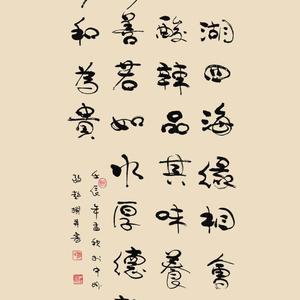 湖四海緣相會
酸辣品其味養
善若如水厚德
和為貴
壬辰年孟秋於中州